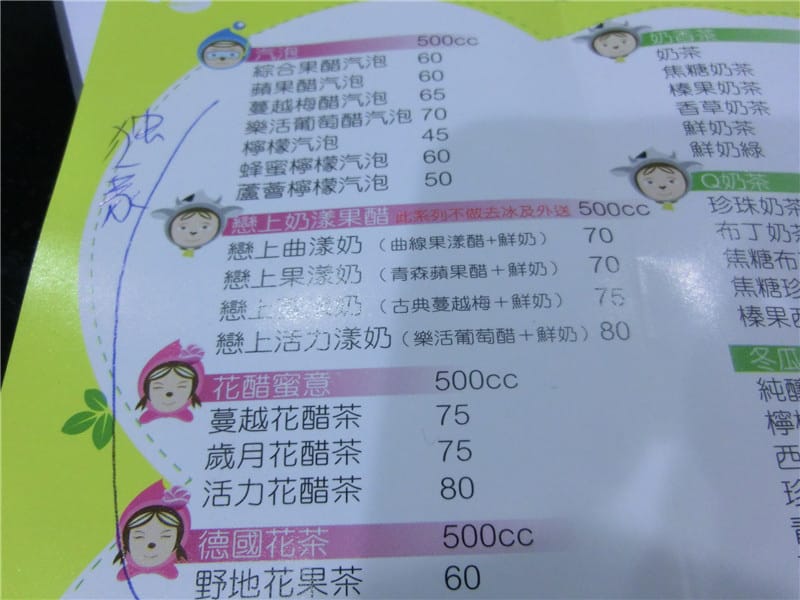 汽泡 500cc
綜合果醋汽泡 60
蘋果醋汽泡 60
蔓越梅醋汽泡 65
樂活葡萄醋汽泡 70
檸檬汽泡 45
蜂蜜檸檬汽泡 60
蘆薈檸檬汽泡 50
独家
戀上奶漾果醋 此系列不做去冰及外送 500cc
戀上曲漾奶（曲線果漾醋+鮮奶） 70
戀上果漾奶（青森蘋果醋＋鮮奶） 70
戀上 漾奶（古典蔓越梅＋鮮奶） 75
戀上活力漾奶（樂活葡萄醋＋鮮奶） 80
花醋蜜意 500cc
蔓越花醋茶 75
歲月花醋茶 75
活力花醋茶 80
德國花茶 500cc
野地花果茶 60
奶香茶
奶茶
焦糖奶茶
榛果奶茶
香草奶茶
鮮奶茶
鮮奶綠
Q奶茶
珍珠奶茶
布丁奶茶
焦糖布
焦糖珍
榛果西
冬瓜
純釀
檸檬
西
珍